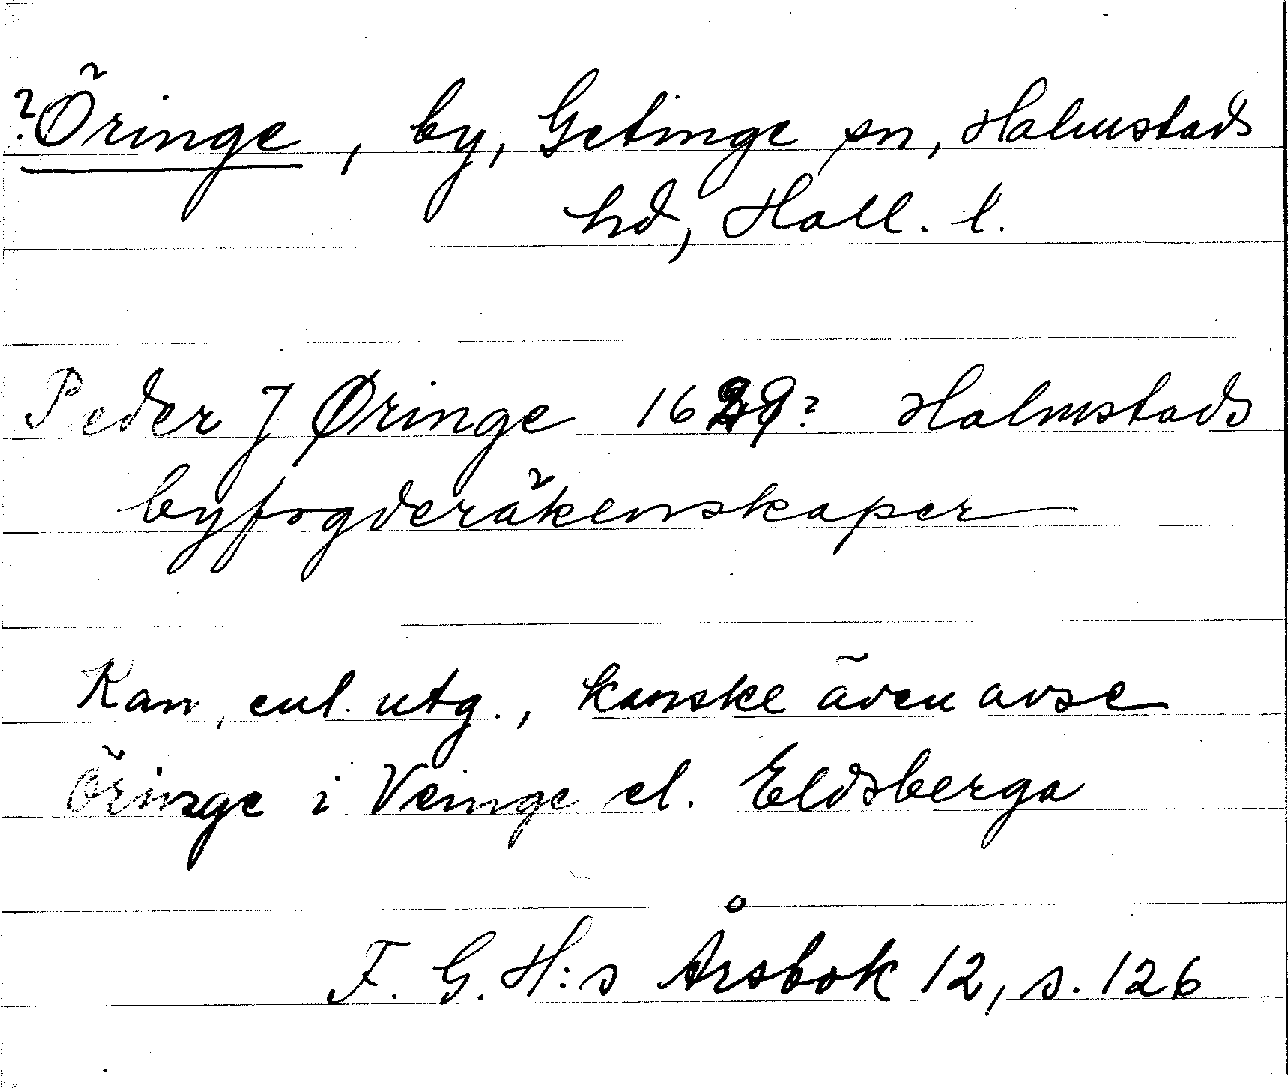 ?Öringe, by, Getinge sn, Halmstads
hd, Hall. l.
Peder J Øringe 1629? Halmstads
byfogderäkenskaper
Kan, enl. utg., kanske även avse
Öringe i Veinge el. Eldsberga
F. G. H:s Årsbok 12, s. 126